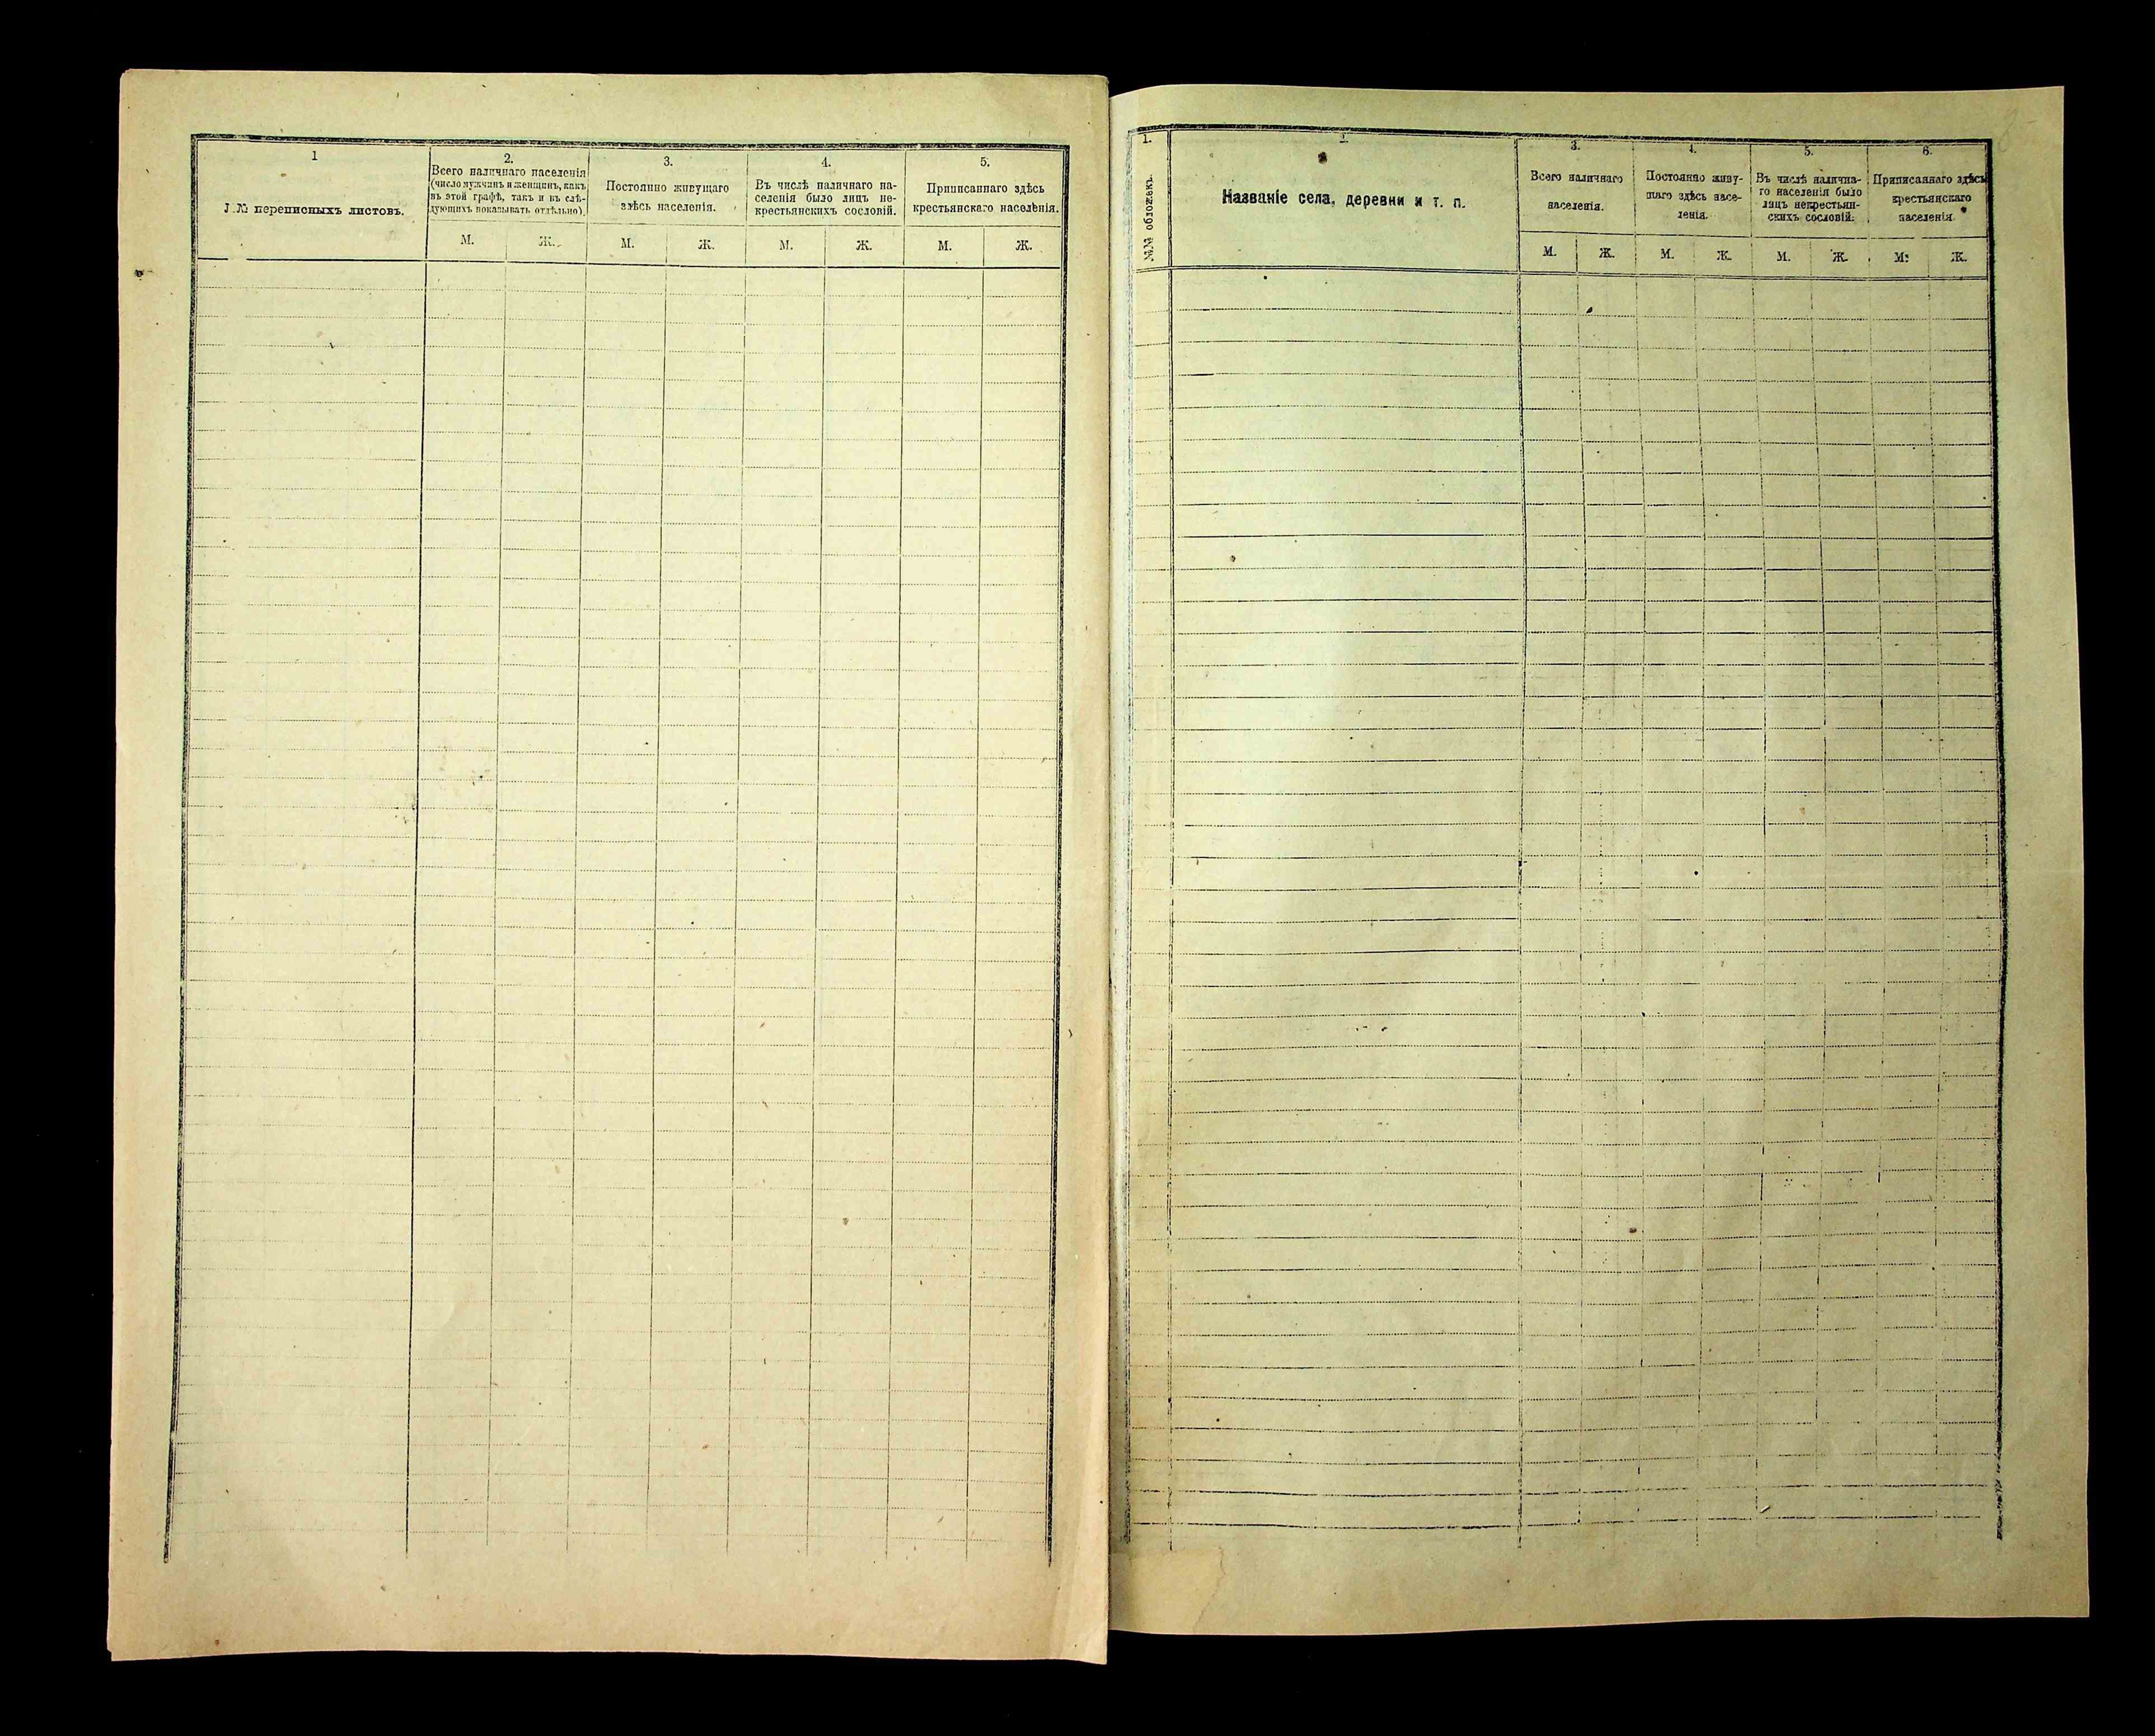 1
№ переписныхъ листовъ.
2.
Всего наличнаго населенія
(число мужчинъ и женщинъ, какъ
въ этой графѣ, такъ и въ слѣ-
дующихъ показывать отдѣльно).
3.
Постоянно живущаго
здѣсь населенія.
4.
Въ числѣ наличнаго на-
селенія было лицъ не-
крестьянскихъ сословій.
5.
Приписаннаго здѣсь
крестьянскаго населѣнія.
М. Ж. М. Ж. М. Ж. М. Ж.
1.
№№ обложекъ.
2.
Названіе села, деревни и т. п.
3.
Всего наличнаго
населенія.
4.
Постоянно живу-
щаго здѣсь насе-
ленія.
5.
Въ числѣ налична-
го населенія было
лицъ некрестьян-
скихъ сословій.
6.
Приписаннаго здѣсь
крестьянскаго
населенія.
М. Ж. М. Ж. М. Ж. М. Ж.